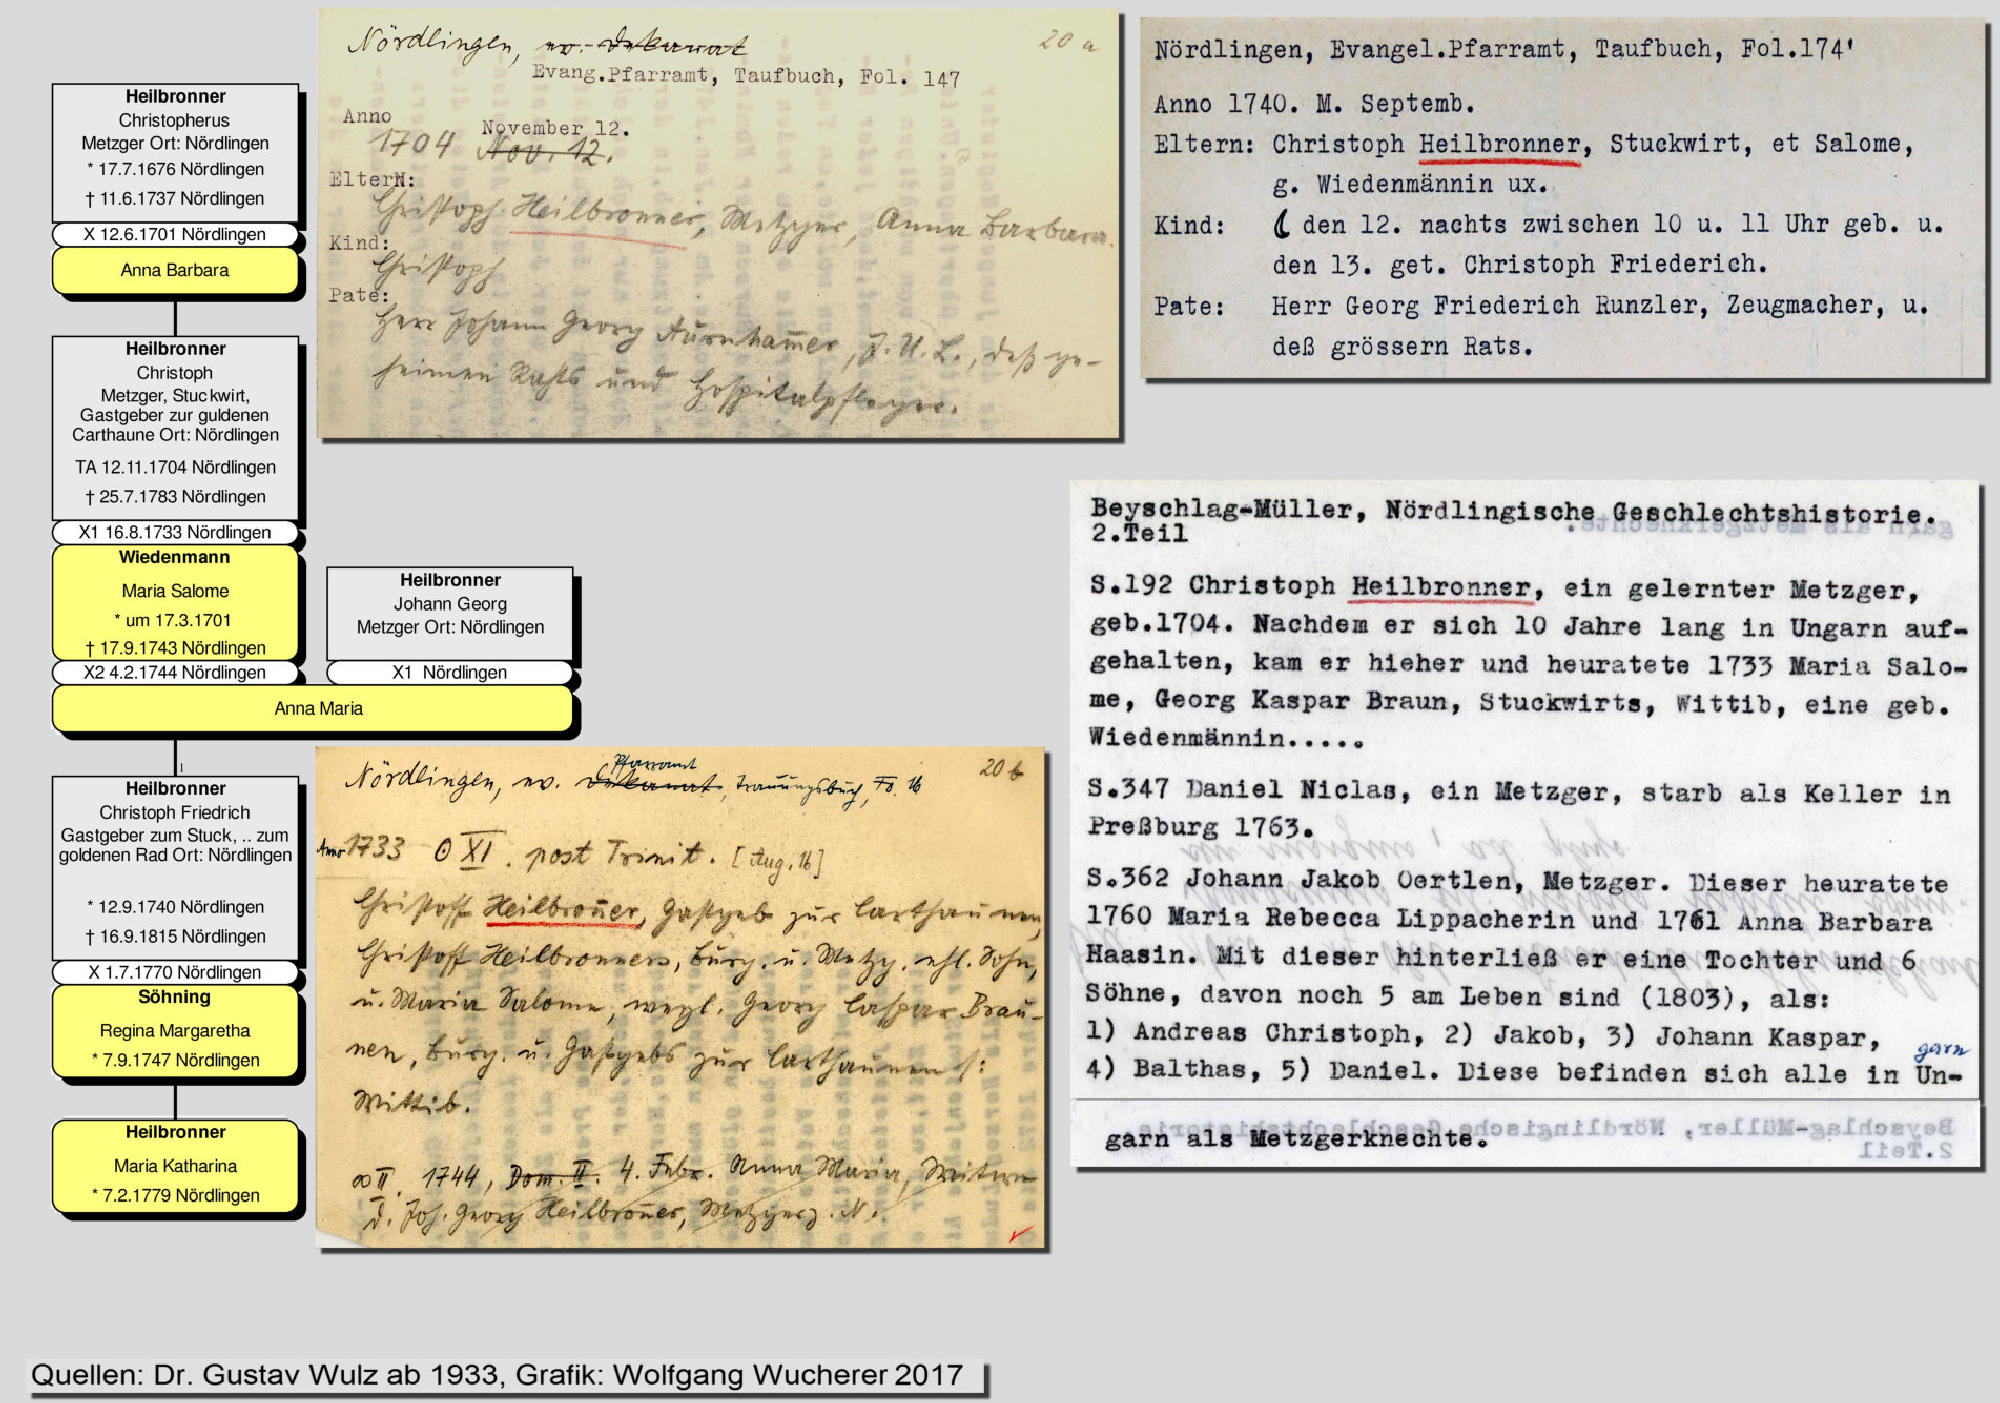 Heilbronner
Christopherus
Metzger Ort: Nördlingen
* 17.7.1676 Nördlingen
† 11.6.1737 Nördlingen
X 12.6.1701 Nördlingen
Anna Barbara
Heilbronner
Christoph
Metzger, Stuckwirt,
Gastgeber zur guldenen
Carthaune Ort: Nördlingen
TA 12.11.1704 Nördlingen
† 25.7.1783 Nördlingen
X1 16.8.1733 Nördlingen
Wiedenmann
Maria Salome
* um 17.3.1701
† 17.9.1743 Nördlingen
X2 4.2.1744 Nördlingen
Heilbronner
Johann Georg
Metzger Ort: Nördlingen
X1 Nördlingen
Anna Maria
1
Heilbronner
Christoph Friedrich
Gastgeber zum Stuck, .. zum
goldenen Rad Ort: Nördlingen
* 12.9.1740 Nördlingen
† 16.9.1815 Nördlingen
X 1.7.1770 Nördlingen
Söhning
Regina Margaretha
* 7.9.1747 Nördlingen
Heilbronner
Maria Katharina
* 7.2.1779 Nördlingen
Nördlingen, ev. Dekanat
20 a
Evang.Pfarramt, Taufbuch, Fol. 147
Anno
November 12.
1704 Nov. 12.
Eltern:
Christoph Heilbronner, Metzger, Anna Barbara.
Kind:
Christoph
Pate:
Herr Johann Georg Aurnhamer, J. U. L., deß ge-
heimen Rahts und Hospitalpfleger.
Nördlingen, Evangel.Pfarramt, Taufbuch, Fol.174'
Anno 1740. M. Septemb.
Eltern: Christoph Heilbronner, Stuckwirt, et Salome,
g. Wiedenmännin ux.
Kind: den 12. nachts zwischen 10 u. 11 Uhr geb. u.
den 13. get. Christoph Friederich.
Pate: Herr Georg Friederich Runzler, Zeugmacher, u.
deß grössern Rats.
Beyschlag-Müller, Nördlingische Geschlechtshistorie.
2.Teil
S.192 Christoph Heilbronner, ein gelernter Metzger,
geb.1704. Nachdem er sich 10 Jahre lang in Ungarn auf-
gehalten, kam er hieher und heuratete 1733 Maria Salo-
me, Georg Kaspar Braun, Stuckwirts, Wittib, eine geb.
Wiedenmännin.....
S.347 Daniel Niclas, ein Metzger, starb als Keller in
Preßburg 1763.
S.362 Johann Jakob Oertlen, Metzger. Dieser heuratete
1760 Maria Rebecca Lippacherin und 1761 Anna Barbara
Haasin. Mit dieser hinterließ er eine Tochter und 6
Söhne, davon noch 5 am Leben sind (1803), als:
1) Andreas Christoph, 2) Jakob, 3) Johann Kaspar,
garn
4) Balthas, 5) Daniel. Diese befinden sich alle in Un-
garn als Metzgerknechte.
Pfarramt
20 b
Nördlingen, ev. Dekanat, Trauungsbuch, Fo. 16
Anno 1733 ⊙ XI. post Trinit. [Aug. 16]
Christoff Heilbroñer, Gastgeb zur Carthaunen,
Christoff Heilbronners, Burg. u. Metzg. ehl. Sohn,
u. Maria Salome, weyl. Georg Caspar Brau-
nen, Burg. u. Gastgebs zur Carthaunen :
Wittib.
∞ II. 1744, Dom. II. 4. Febr. Anna Maria, Witwe
d. Joh. Georg Heilbroñer, Metzgers z. N.
Quellen: Dr. Gustav Wulz ab 1933, Grafik: Wolfgang Wucherer 2017